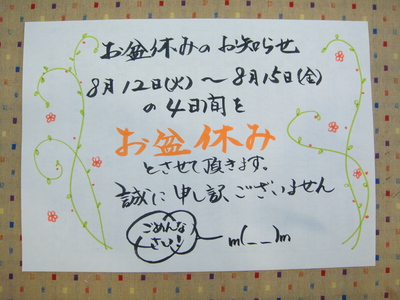 お盆休みのお知らせ
8月12日(火)～8月15日(金)
の4日間を
お盆休み
とさせて頂きます。
誠に申し訳ございません
ごめんな
さい!!
m(__)m